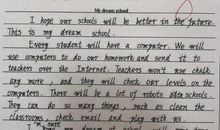 My dream school
I hope our schools will be better in the future.
This is my dream school.
Every student will have a computer. We will
use computers to do our homework and send it to
teachers over the Internet. Teachers won't use chalk
any more, and they will check our levels on the
computers. There will be a lot of robots at schools.
They can do so many things, such as clean the
classrooms, check email and play with us.
my dream school